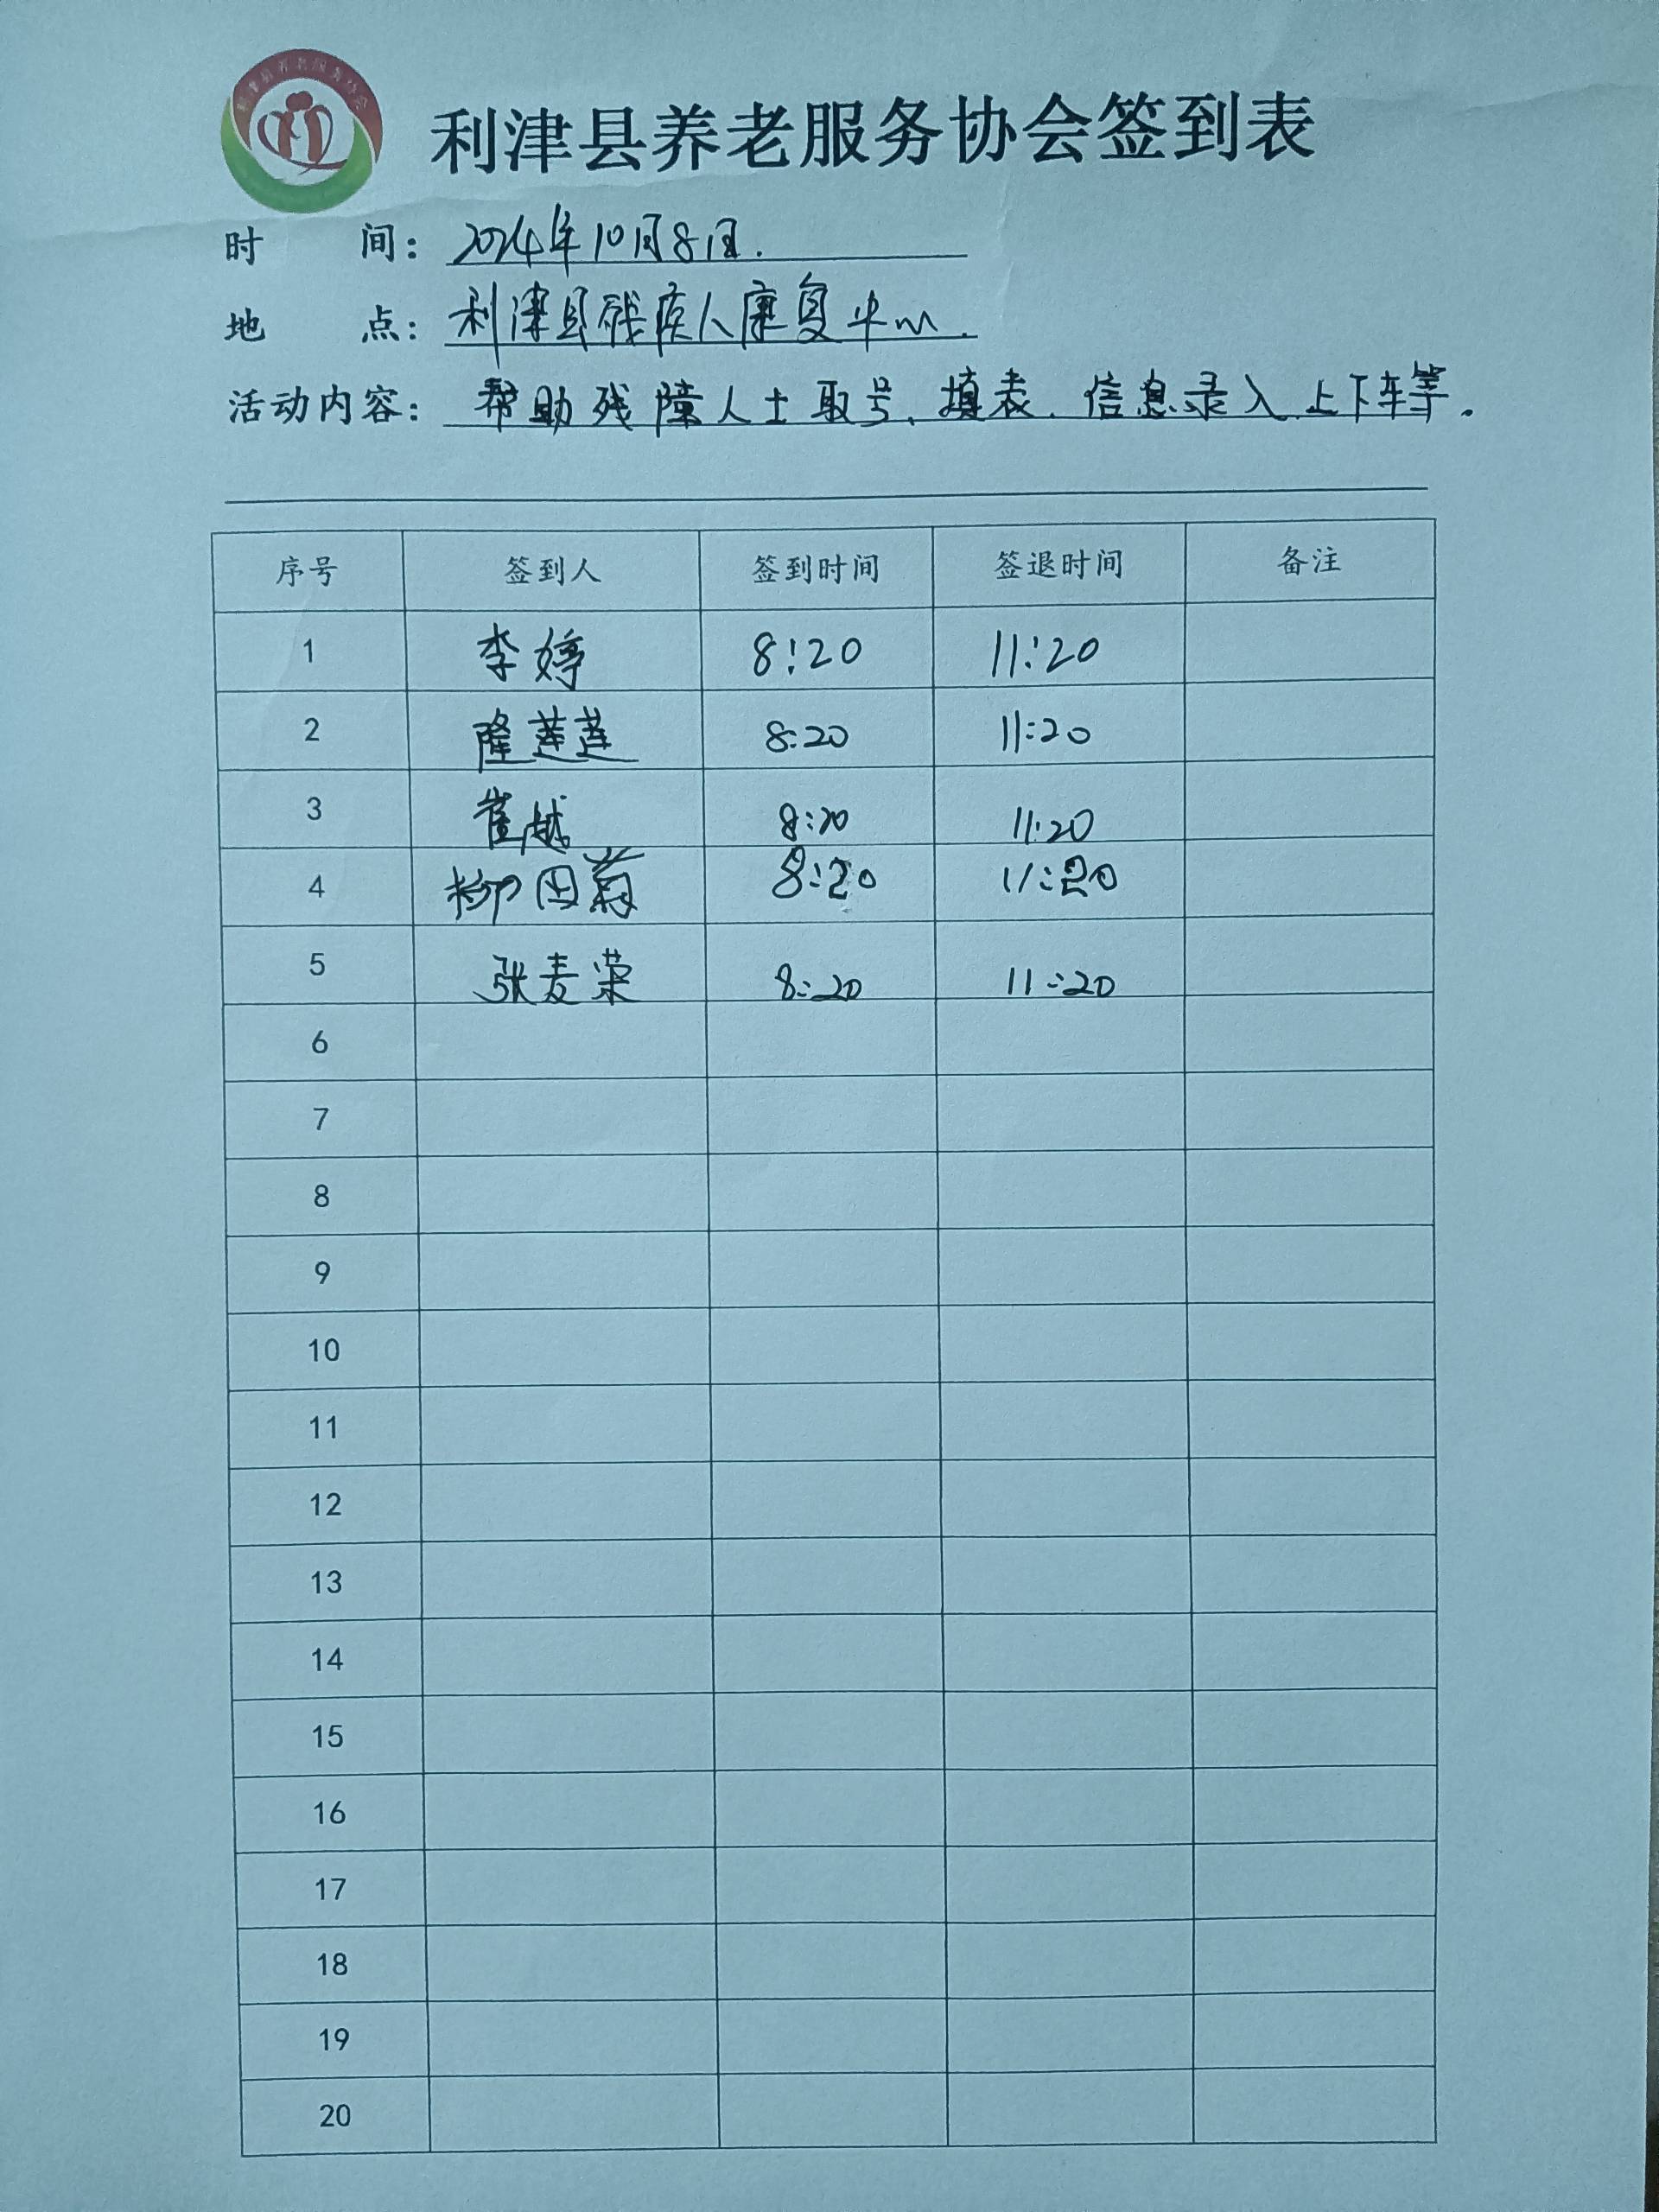 利津县养老服务协会
利津县养老服务协会签到表
时 间：2024年10月8日.
地 点：利津县残疾人康复中心.
活动内容：帮助残障人士取号、填表、信息录入、上下车等.
序号 签到人 签到时间 签退时间 备注
1 李婷 8:20 11:20
2 隆莲莲 8:20 11:20
3 崔越 8:20 11:20
4 柳田菊 8:20 11:20
5 张麦荣 8:20 11:20
6
7
8
9
10
11
12
13
14
15
16
17
18
19
20